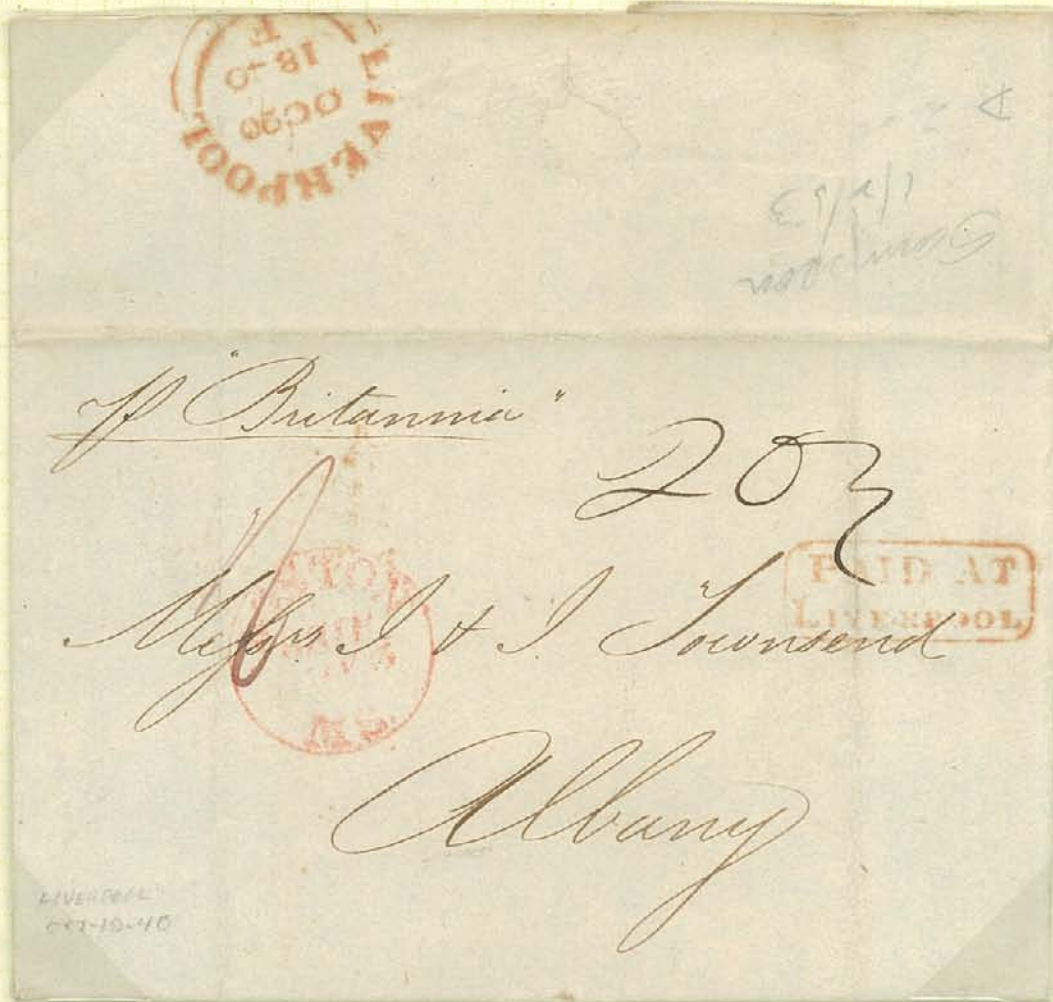 LIVERPOOL
OC20
1840
F
1/2/63
p "Britannia"
20 3
PAID AT
LIVERPOOL
1/
Messrs I & I Townsend
MS.
Albany
LIVERPOOL
OCT-19-40